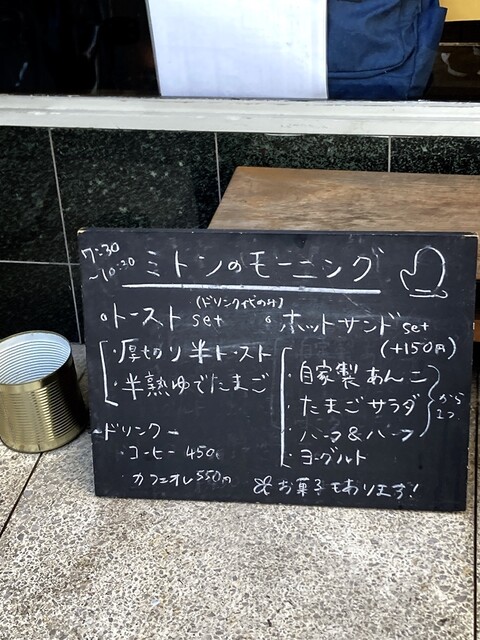 7:30
~10:30
ミトンのモーニング
(ドリンク代のみ)
○トーストset
・厚切り半トースト
・半熟ゆでたまご
-ドリンク-
・コーヒー 450円
・カフェオレ 550円
○ホットサンドset
(+150円)
・自家製あんこ
・たまごサラダ
・ハーフ&ハーフ
から
2つ
・ヨーグルト
お菓子もあります!